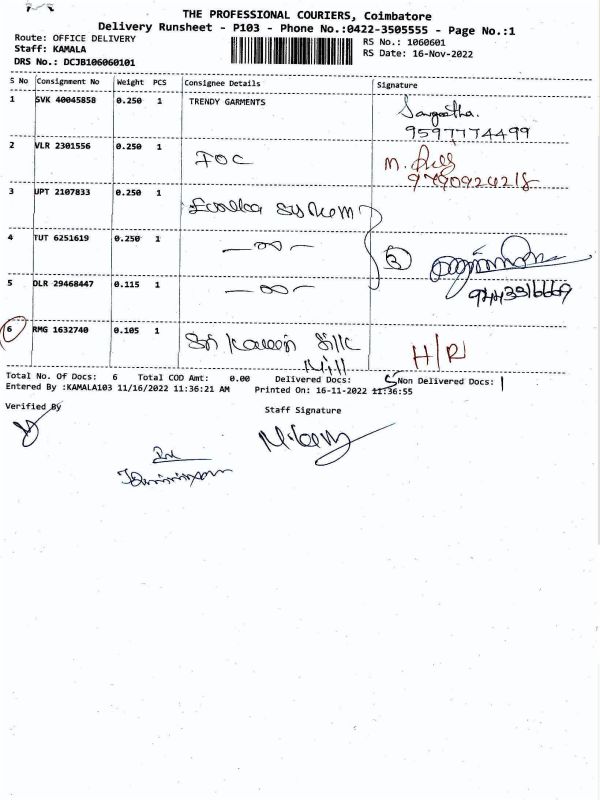 THE PROFESSIONAL COURIERS, Coimbatore
Delivery Runsheet - P103 - Phone No.:0422-3505555 - Page No.:1
Route: OFFICE DELIVERY
Staff: KAMALA
DRS No.: DCJB106060101
RS No.: 1060601
RS Date: 16-Nov-2022
S No Consignment No Weight PCS Consignee Details Signature
1 SVK 40045858 0.250 1 TRENDY GARMENTS Sangeetha.
9597774499
2 VLR 2301556 0.250 1 IOC M.
3 UPT 2107833 0.250 1 System
4 TUT 6251619 0.250 1 3
5 DLR 29468447 0.115 1
6 RMG 1632740 0.105 1 Sri Silk H/R
Mill
Total No. Of Docs: 6 Total COD Amt: 0.00 Delivered Docs: 5 Non Delivered Docs: 1
Entered By :KAMALA103 11/16/2022 11:36:21 AM Printed On: 16-11-2022 11:36:55
Verified By
Staff Signature